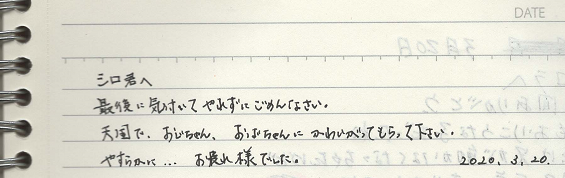 DATE
シロ君へ
最後に気付いてやれずにごめんなさい。
天国で、おじちゃん、おばちゃんにかわいがってもらって下さい。
やすらかに… お疲れ様でした。 2020. 3. 20.